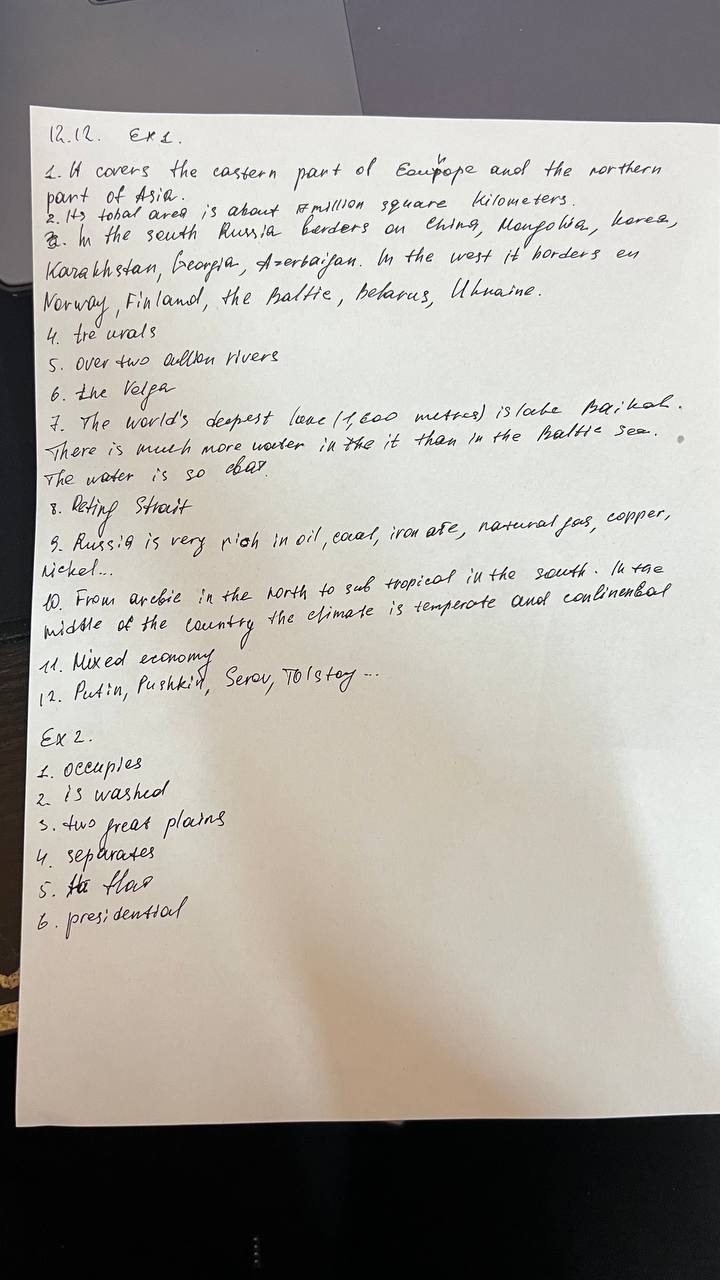 12.12. Ex 1.
1. It covers the eastern part of Europe and the northern
part of Asia.
2. Its total area is about 17 million square kilometers.
3. In the south Russia borders on China, Mongolia, Korea,
Kazakhstan, Georgia, Azerbaijan. In the west it borders on
Norway, Finland, the Baltic, Belarus, Ukraine.
4. the urals
5. over two million rivers
6. the Volga
7. The world's deepest lake (1,600 metres) is lake Baikal.
There is much more water in it than in the Baltic sea.
The water is so clear.
8. Bering Strait
9. Russia is very rich in oil, coal, iron ore, natural gas, copper,
nickel...
10. From arctic in the north to sub tropical in the south. In the
middle of the country the climate is temperate and continental
11. Mixed economy
12. Putin, Pushkin, Serov, Tolstoy...
Ex 2.
1. occupies
2. is washed
3. two great plains
4. separates
5. flow
6. presidential